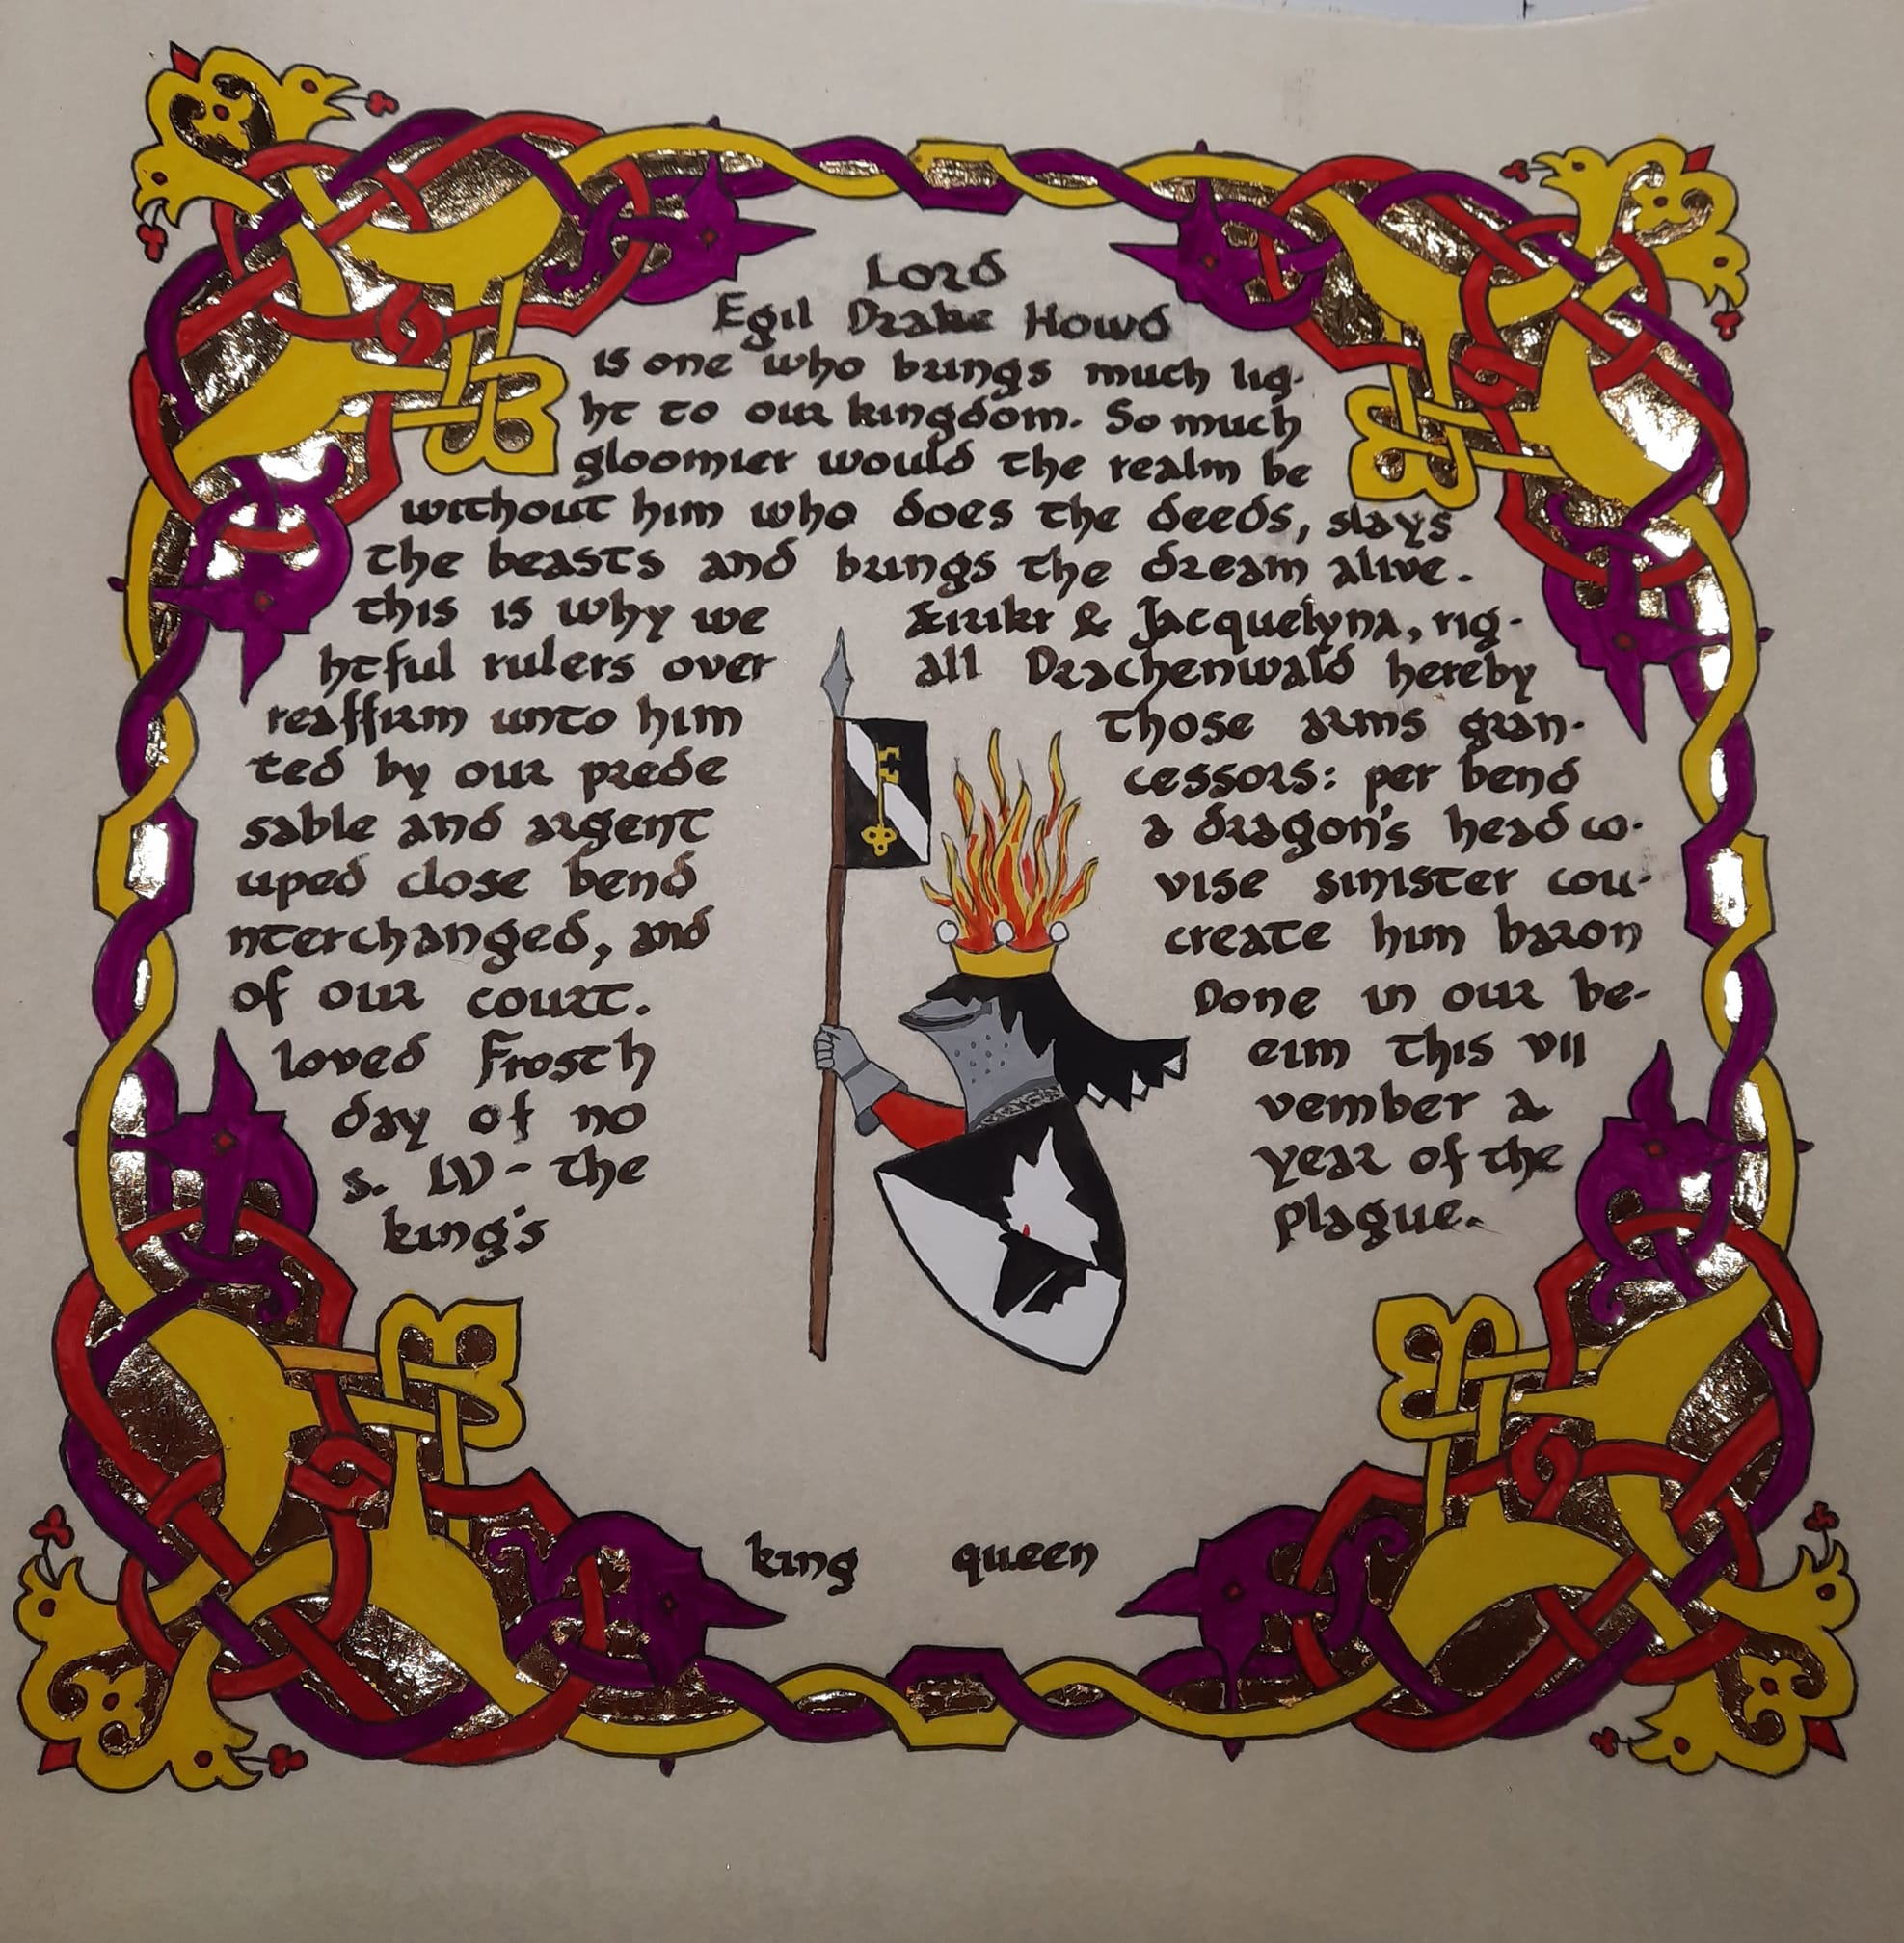 Lord
Egil Drake Howd
is one who brings much lig-
ht to our kingdom. So much
gloomier would the realm be
without him who does the deeds, slays
the beasts and brings the dream alive.
this is why we Æirikr & Jacquelyna, rig-
htful rulers over all Drachenwald hereby
reaffirm unto him those arms gran-
ted by our prede cessors: per bend
sable and argent a dragon's head co-
uped close bend vise sinister cou-
nterchanged, and create him baron
of our court. Done in our be-
loved Frosth eim this vii
day of no vember a.
s. LV - the year of the
king's plague.
king queen